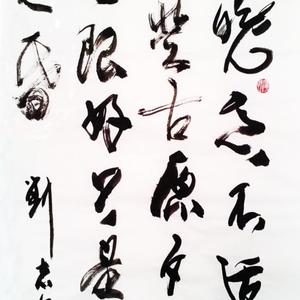 晚意不适
登古原夕
无限好只是
近黄昏
刘志